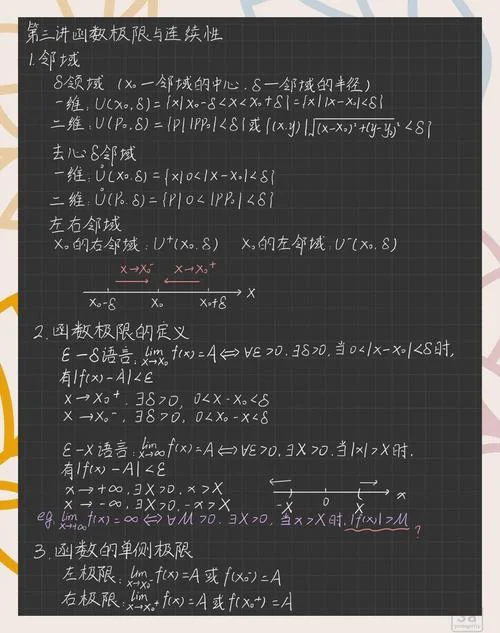 第三讲函数极限与连续性
1.邻域
δ领域（x₀—邻域的中心，δ—邻域的半径）
一维：U(x₀,δ)={x|x₀-δ<x<x₀+δ}={x||x-x₀|<δ}
二维：U(P₀,δ)={P||PP₀|<δ}或{(x,y)|√(x-x₀)²+(y-y₀)²<δ}
去心δ邻域
一维：Ů(x₀,δ)={x|0<|x-x₀|<δ}
二维：Ů(P₀,δ)={P|0<|PP₀|<δ}
左右邻域
x₀的右邻域：U⁺(x₀,δ) x₀的左邻域：U⁻(x₀,δ)
x→x₀⁻ x→x₀⁺
x₀-δ x₀ x₀+δ x
2.函数极限的定义
ε-δ语言：lim x→x₀ f(x)=A⇔∀ε>0,∃δ>0,当0<|x-x₀|<δ时,
有|f(x)-A|<ε
x→x₀⁺,∃δ>0,0<x-x₀<δ
x→x₀⁻,∃δ>0,0<x₀-x<δ
ε-X语言：lim x→∞ f(x)=A⇔∀ε>0,∃X>0,当|x|>X时,
有|f(x)-A|<ε
x→+∞,∃X>0,x>X
x→-∞,∃X>0,-x>X
-X 0 X x
eg.lim x→+∞ f(x)=∞⇔∀M>0,∃X>0,当x>X时,|f(x)|>M
?
3.函数的单侧极限
左极限：lim x→x₀⁻ f(x)=A或f(x₀⁻)=A
右极限：lim x→x₀⁺ f(x)=A或f(x₀⁺)=A